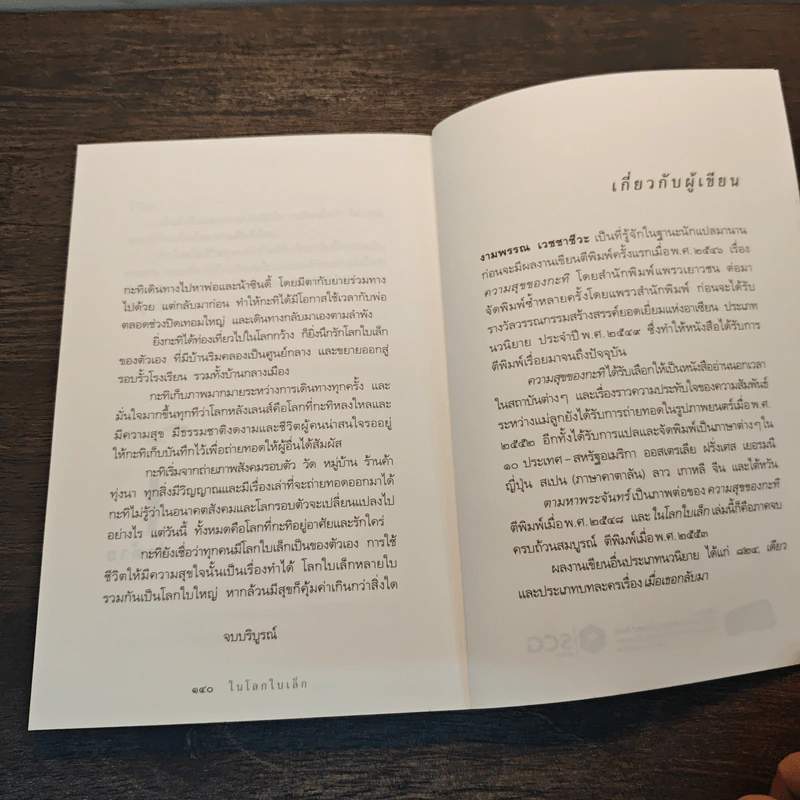 กะทิเดินทางไปหาพ่อและน้าซินดี้ โดยมีตากับยายร่วมทาง
ไปด้วย แต่กลับมาก่อน ทำให้กะทิได้มีโอกาสใช้เวลากับพ่อ
ตลอดช่วงปิดเทอมใหญ่ และเดินทางกลับมาเองตามลำพัง
ยิ่งกะทิได้ท่องเที่ยวไปในโลกกว้าง ก็ยิ่งนึกรักโลกใบเล็ก
ของตัวเอง ที่มีบ้านริมคลองเป็นศูนย์กลาง และขยายออกสู่
รอบรั้วโรงเรียน รวมทั้งบ้านกลางเมือง
กะทิเก็บภาพมากมายระหว่างการเดินทางทุกครั้ง และ
มั่นใจมากขึ้นทุกทีว่าโลกหลังเลนส์คือโลกที่กะทิหลงใหลและ
มีความสุข มีธรรมชาติงดงามและชีวิตผู้คนน่าสนใจรออยู่
ให้กะทิเก็บบันทึกไว้เพื่อถ่ายทอดให้ผู้อื่นได้สัมผัส
กะทิเริ่มจากถ่ายภาพสังคมรอบตัว วัด หมู่บ้าน ร้านค้า
ทุ่งนา ทุกสิ่งมีวิญญาณและมีเรื่องเล่าที่จะถ่ายทอดออกมาได้
กะทิไม่รู้ว่าในอนาคตสังคมและโลกรอบตัวจะเปลี่ยนแปลงไป
อย่างไร แต่วันนี้ ทั้งหมดคือโลกที่กะทิอยู่อาศัยและรักใคร่
กะทิยังเชื่อว่าทุกคนมีโลกใบเล็กเป็นของตัวเอง การใช้
ชีวิตให้มีความสุขใจนั้นเป็นเรื่องทำได้ โลกใบเล็กหลายใบ
รวมกันเป็นโลกใบใหญ่ หากล้วนมีสุขก็คุ้มค่าเกินกว่าสิ่งใด
จบบริบูรณ์
๑๔๐ ในโลกใบเล็ก
เกี่ยวกับผู้เขียน
งามพรรณ เวชชาชีวะ เป็นที่รู้จักในฐานะนักแปลมานาน
ก่อนจะมีผลงานเขียนตีพิมพ์ครั้งแรกเมื่อ พ.ศ. ๒๕๔๖ เรื่อง
ความสุขของกะทิ โดยสำนักพิมพ์แพรวเยาวชน ต่อมา
จัดพิมพ์ซ้ำหลายครั้งโดยแพรวสำนักพิมพ์ ก่อนจะได้รับ
รางวัลวรรณกรรมสร้างสรรค์ยอดเยี่ยมแห่งอาเซียน ประเภท
นวนิยาย ประจำปี พ.ศ. ๒๕๔๙ ซึ่งทำให้หนังสือได้รับการ
ตีพิมพ์เรื่อยมาจนถึงปัจจุบัน
ความสุขของกะทิ ได้รับเลือกให้เป็นหนังสืออ่านนอกเวลา
ในสถาบันต่างๆ และเรื่องราวความประทับใจของความสัมพันธ์
ระหว่างแม่ลูกยังได้รับการถ่ายทอดในรูปภาพยนตร์เมื่อ พ.ศ.
๒๕๕๒ อีกทั้งได้รับการแปลและจัดพิมพ์เป็นภาษาต่างๆ ใน
๑๐ ประเทศ – สหรัฐอเมริกา ออสเตรเลีย ฝรั่งเศส เยอรมนี
ญี่ปุ่น สเปน (ภาษาคาตาลัน) ลาว เกาหลี จีน และไต้หวัน
ตามหาพระจันทร์ เป็นภาคต่อของ ความสุขของกะทิ
ตีพิมพ์เมื่อ พ.ศ. ๒๕๔๘ และ ในโลกใบเล็ก เล่มนี้ก็คือภาคจบ
ครบถ้วนสมบูรณ์ ตีพิมพ์เมื่อ พ.ศ. ๒๕๕๓
ผลงานเขียนอื่นประเภทนวนิยาย ได้แก่ ๘๒๔, เดียว
และประเภทบทละครเรื่อง เมื่อเธอกลับมา